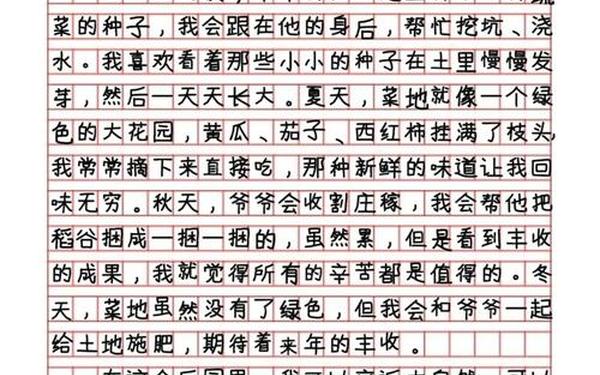 菜的种子，我会跟在他的身后，帮忙挖坑、浇
水。我喜欢看着那些小小的种子在土里慢慢发
芽，然后一天天长大。夏天，菜地就像一个绿
色的大花园，黄瓜、茄子、西红柿挂满了枝头，
我常常摘下来直接吃，那种新鲜的味道让我回
味无穷。秋天，爷爷会收割庄稼，我会帮他把
稻谷捆成一捆一捆的，虽然累，但是看到丰收
的成果，我就觉得所有的辛苦都是值得的。冬
天，菜地虽然没有了绿色，但我会和爷爷一起
给土地施肥，期待着来年的丰收。